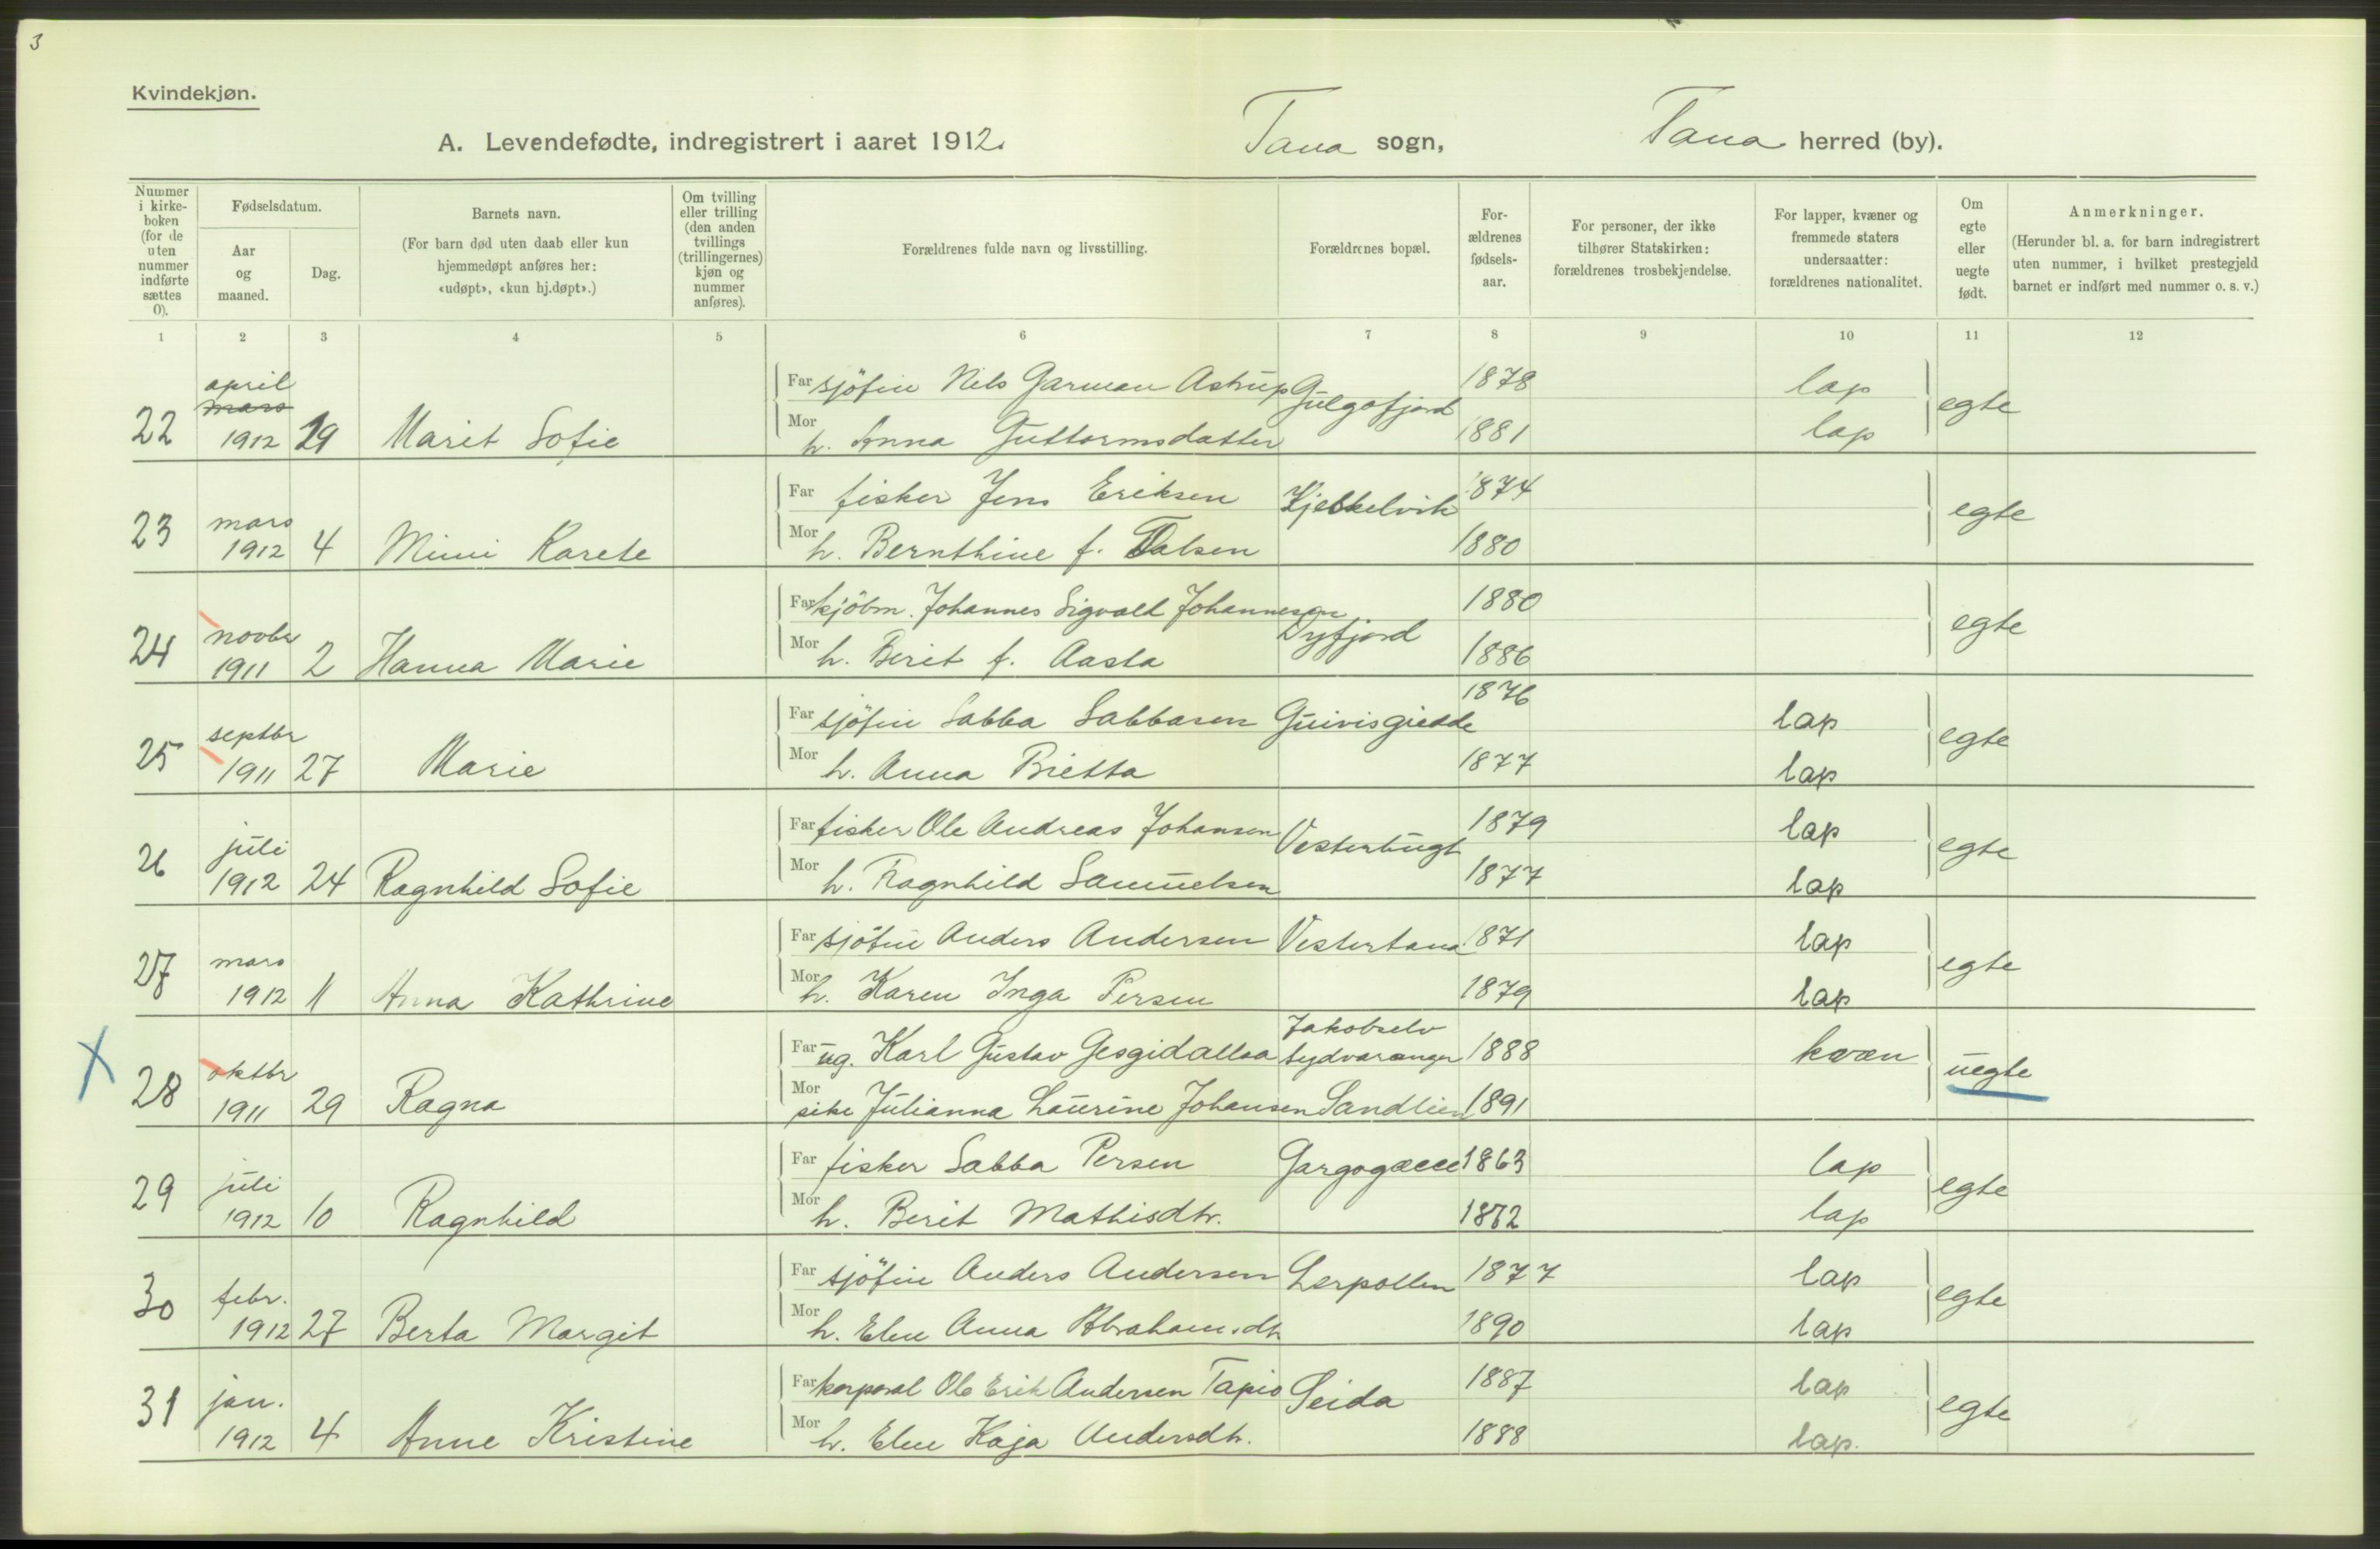 3
Kvindekjøn.
A. Levendefødte, indregistrert i aaret 1912. Tana sogn, Tana herred (by).
Nummer i kirke-boken (for de uten nummer indførte sættes 0).
Fødselsdatum.
Aar og maaned.
Dag.
Barnets navn.
(For barn død uten daab eller kun hjemmedøpt anføres her: «udøpt», «kun hj.døpt».)
Om tvilling eller trilling (den anden tvillings (trillingernes) kjøn og nummer anføres).
Forældrenes fulde navn og livsstilling.
Forældrenes bopæl.
For-ældrenes fødsels-aar.
For personer, der ikke tilhører Statskirken: forældrenes trosbekjendelse.
For lapper, kvæner og fremmede staters undersaatter: forældrenes nationalitet.
Om egte eller uegte født.
Anmerkninger.
(Herunder bl. a. for barn indregistrert uten nummer, i hvilket prestegjeld barnet er indført med nummer o. s. v.)
1 2 3 4 5 6 7 8 9 10 11 12
april
mars
22 1912 29 Marit Sofie
Far sjöfin Nils Garman Astrup Gulgofjord 1878 lap
Mor h. Anna Guttormsdatter 1881 lap
egte
23 mars 1912 4 Mimi Karete
Far fisker Jens Eriksen Kjeskelvik 1874
Mor h. Bernthine f. Dalsen 1880
egte
24 novbr 1911 2 Hanna Marie
Far kjöbm. Johannes Sigvald Johannesen Dyfjord 1880
Mor h. Berit f. Aasta 1886
egte
25 septbr 1911 27 Marie
Far sjöfin Sabba Sabbasen Guivisgiedde 1876 lap
Mor h. Anna Pietta 1877 lap
egte
26 juli 1912 24 Ragnhild Sofie
Far fisker Ole Andreas Johansen Vesterbugt 1879 lap
Mor h. Ragnhild Samuelsen 1877 lap
egte
27 mars 1912 11 Anna Kathrine
Far sjöfin Anders Andersen Vestertana 1871 lap
Mor h. Karen Inga Persen 1879 lap
egte
X 28 oktbr 1911 29 Ragna
Far ug. Karl Gustav Gesgidallaa Jakobselv Sydvaranger 1888 kvæn
Mor pike Julianna Laurine Johansen Sandlien 1891
uegte
29 juli 1912 10 Ragnhild
Far fisker Sabba Persen Gargogæcce 1863 lap
Mor h. Berit Mathisdtr. 1872 lap
egte
30 febr. 1912 27 Berta Margit
Far sjöfin Anders Andersen Lerpollen 1877 lap
Mor h. Elen Anna Abrahamsdtr 1890 lap
egte
31 jan. 1912 4 Anne Kristine
Far korporal Ole Erik Andersen Tapio Seida 1887 lap
Mor h. Elen Kaja Andersdtr. 1888 lap.
egte